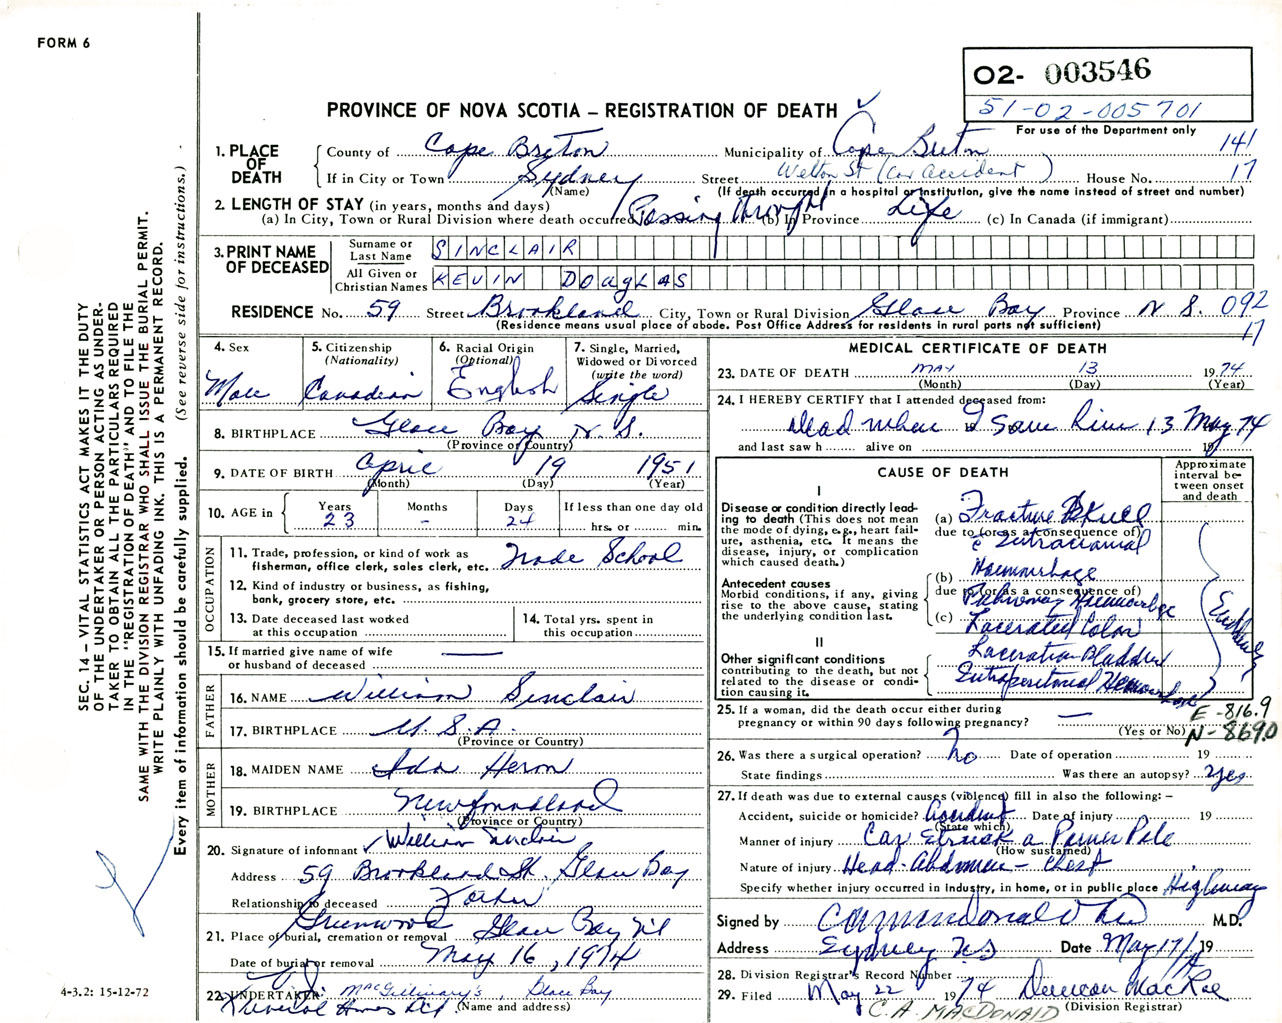 FORM 6
O2- 003546
51-02-005701
For use of the Department only
PROVINCE OF NOVA SCOTIA – REGISTRATION OF DEATH
1. PLACE OF DEATH
County of Cape Breton Municipality of Cape Breton 141
If in City or Town Sydney Street Welton St (Car accident) House No. 17
(Name) (If death occurred in a hospital or institution, give the name instead of street and number)
2. LENGTH OF STAY (in years, months and days)
(a) In City, Town or Rural Division where death occurred Passing through (b) In Province Life (c) In Canada (if immigrant)
3. PRINT NAME OF DECEASED
Surname or Last Name SINCLAIR
All Given or Christian Names KEVIN DOUGLAS
RESIDENCE No. 59 Street Brookland City, Town or Rural Division Glace Bay Province N S. 092
(Residence means usual place of abode. Post Office Address for residents in rural parts not sufficient) 17
4. Sex Male
5. Citizenship (Nationality) Canadian
6. Racial Origin (Optional) English
7. Single, Married, Widowed or Divorced (write the word) Single
8. BIRTHPLACE Glace Bay N. S.
(Province or Country)
9. DATE OF BIRTH April 19 1951
(Month) (Day) (Year)
10. AGE in Years 23 Months - Days 24 If less than one day old hrs. or min.
OCCUPATION
11. Trade, profession, or kind of work as fisherman, office clerk, sales clerk, etc. Trade School
12. Kind of industry or business, as fishing, bank, grocery store, etc.
13. Date deceased last worked at this occupation
14. Total yrs. spent in this occupation
15. If married give name of wife or husband of deceased
FATHER
16. NAME William Sinclair
17. BIRTHPLACE U. S. A.
(Province or Country)
MOTHER
18. MAIDEN NAME Ida Heron
19. BIRTHPLACE Newfoundland
(Province or Country)
20. Signature of informant William Sinclair
Address 59 Brookland St, Glace Bay
Relationship to deceased Father
21. Place of burial, cremation or removal Greenwood Glace Bay
Date of burial or removal May 16, 1974
22. UNDERTAKER: MacGillivary's, Glace Bay
Funeral Home Ltd (Name and address)
MEDICAL CERTIFICATE OF DEATH
23. DATE OF DEATH MAY 13 1974
(Month) (Day) (Year)
24. I HEREBY CERTIFY that I attended deceased from:
Dead when I Saw him 13 May 74
and last saw h alive on 19
CAUSE OF DEATH
Approximate interval between onset and death
I
Disease or condition directly leading to death (This does not mean the mode of dying, e.g., heart failure, asthenia, etc. It means the disease, injury, or complication which caused death.)
(a) Fracture Skull
due to (or as a consequence of)
c Intracranial
Antecedent causes
Morbid conditions, if any, giving rise to the above cause, stating the underlying condition last.
(b) Haemorrhage
due to (or as a consequence of)
Pulmonary Haemorrhage
(c) Lacerated Colon
II
Other significant conditions contributing to the death, but not related to the disease or condition causing it.
Laceration Bladder
Intraperitoneal Hemorrhage
25. If a woman, did the death occur either during pregnancy or within 90 days following pregnancy? —
(Yes or No)
E -816.9
N-869.0
26. Was there a surgical operation? No Date of operation 19
State findings Was there an autopsy? Yes
27. If death was due to external causes (violence) fill in also the following: –
Accident, suicide or homicide? Accident Date of injury 19
(State which)
Manner of injury Car Struck a Power Pole
(How sustained)
Nature of injury Head - Abdomen - Chest
Specify whether injury occurred in industry, in home, or in public place Highway
Signed by M.D.
Address Sydney NS Date May 17/ 19
28. Division Registrar's Record Number
29. Filed May 22 1974 Duncan MacRae
C. A. MACDONALD (Division Registrar)
SEC. 14 – VITAL STATISTICS ACT MAKES IT THE DUTY
OF THE UNDERTAKER OR PERSON ACTING AS UNDER-
TAKER TO OBTAIN ALL THE PARTICULARS REQUIRED
IN THE "REGISTRATION OF DEATH" AND TO FILE THE
SAME WITH THE DIVISION REGISTRAR WHO SHALL ISSUE THE BURIAL PERMIT.
WRITE PLAINLY WITH UNFADING INK. THIS IS A PERMANENT RECORD.
Every item of information should be carefully supplied. (See reverse side for instructions.)
4-3.2: 15-12-72